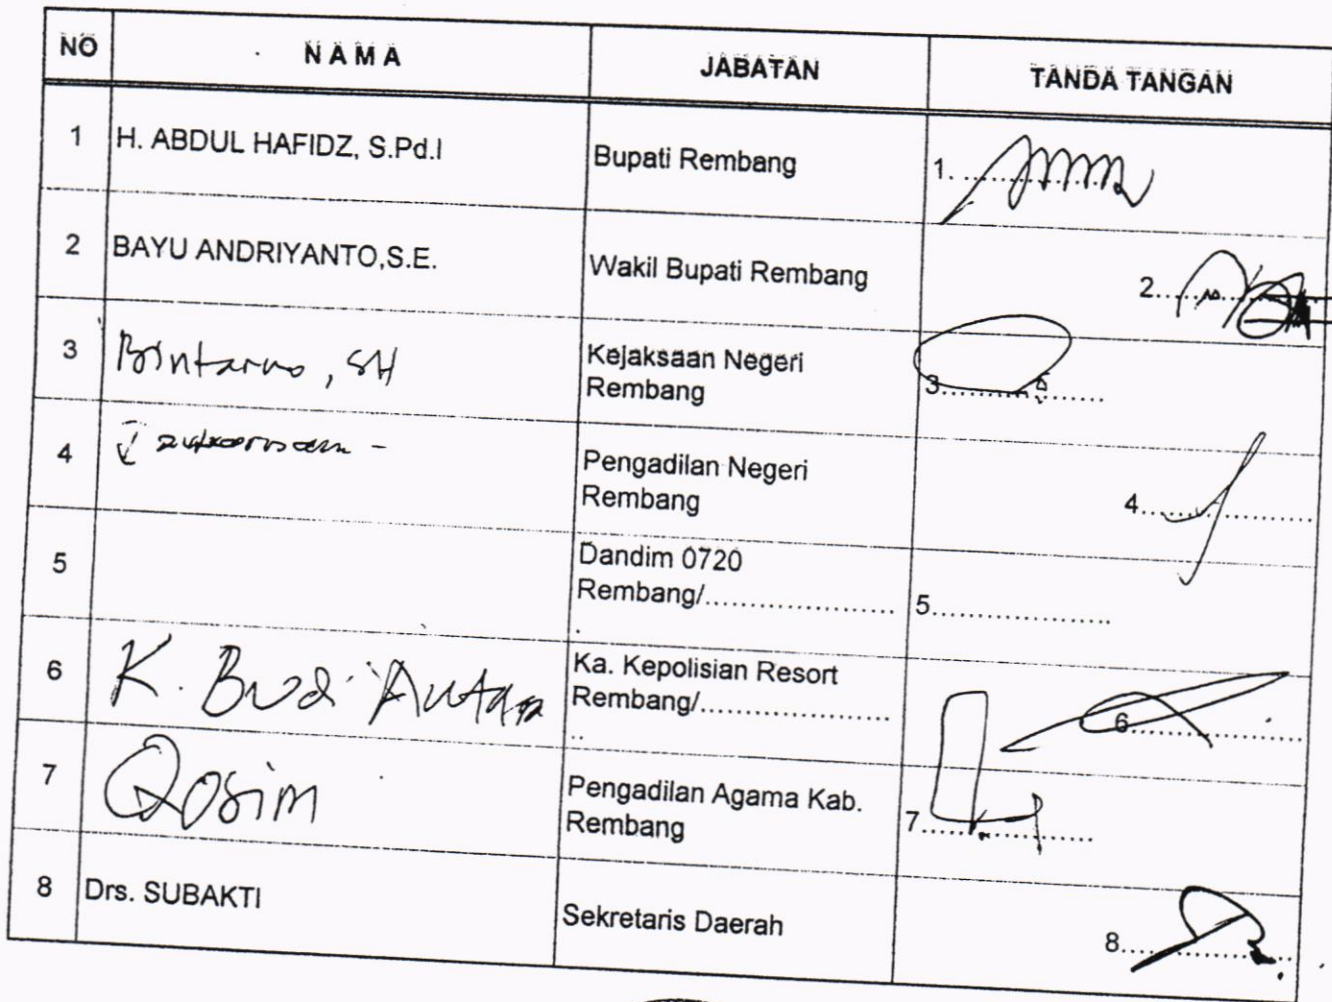 NO NAMA JABATAN TANDA TANGAN
1 H. ABDUL HAFIDZ, S.Pd.I Bupati Rembang 1. ............
2 BAYU ANDRIYANTO,S.E. Wakil Bupati Rembang 2............
3 Bintarno, SH Kejaksaan Negeri
Rembang 3....................
4 Pengadilan Negeri
Rembang 4....................
5 Dandim 0720
Rembang/..................... 5....................
.
6 K. Budi Ka. Kepolisian Resort
Rembang/..................... 6....................
..
7 Qosim Pengadilan Agama Kab.
Rembang 7....................
8 Drs. SUBAKTI Sekretaris Daerah 8....................